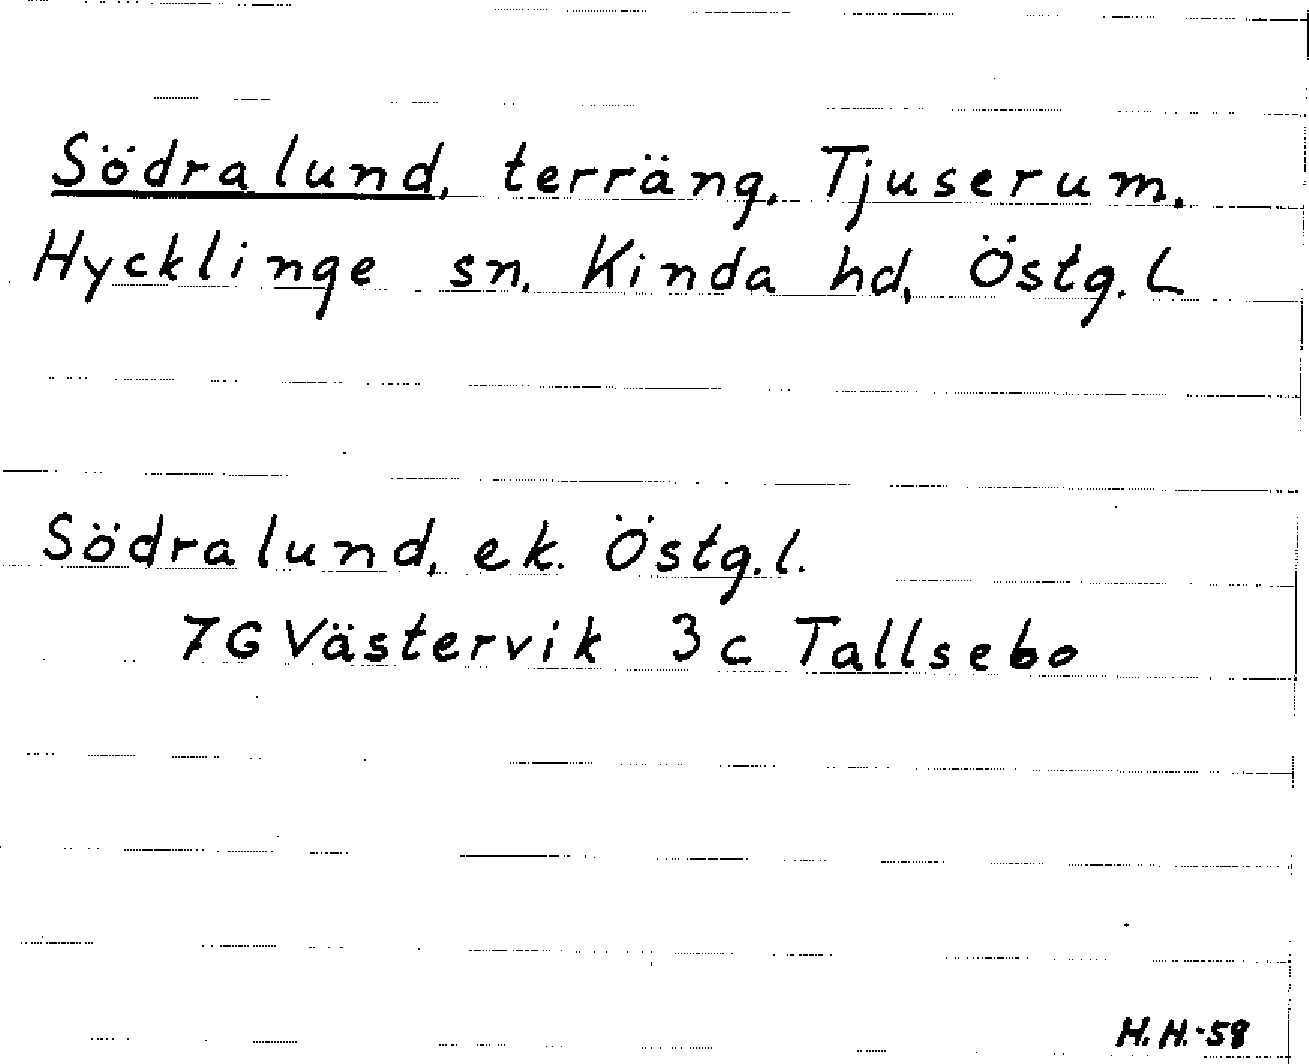 Södralund, terräng, Tjuserum.
Hycklinge sn. Kinda hd, Östg. L
Södralund, ek. Östg.l.
7G Västervik 3c Tallsebo
H.H.-58